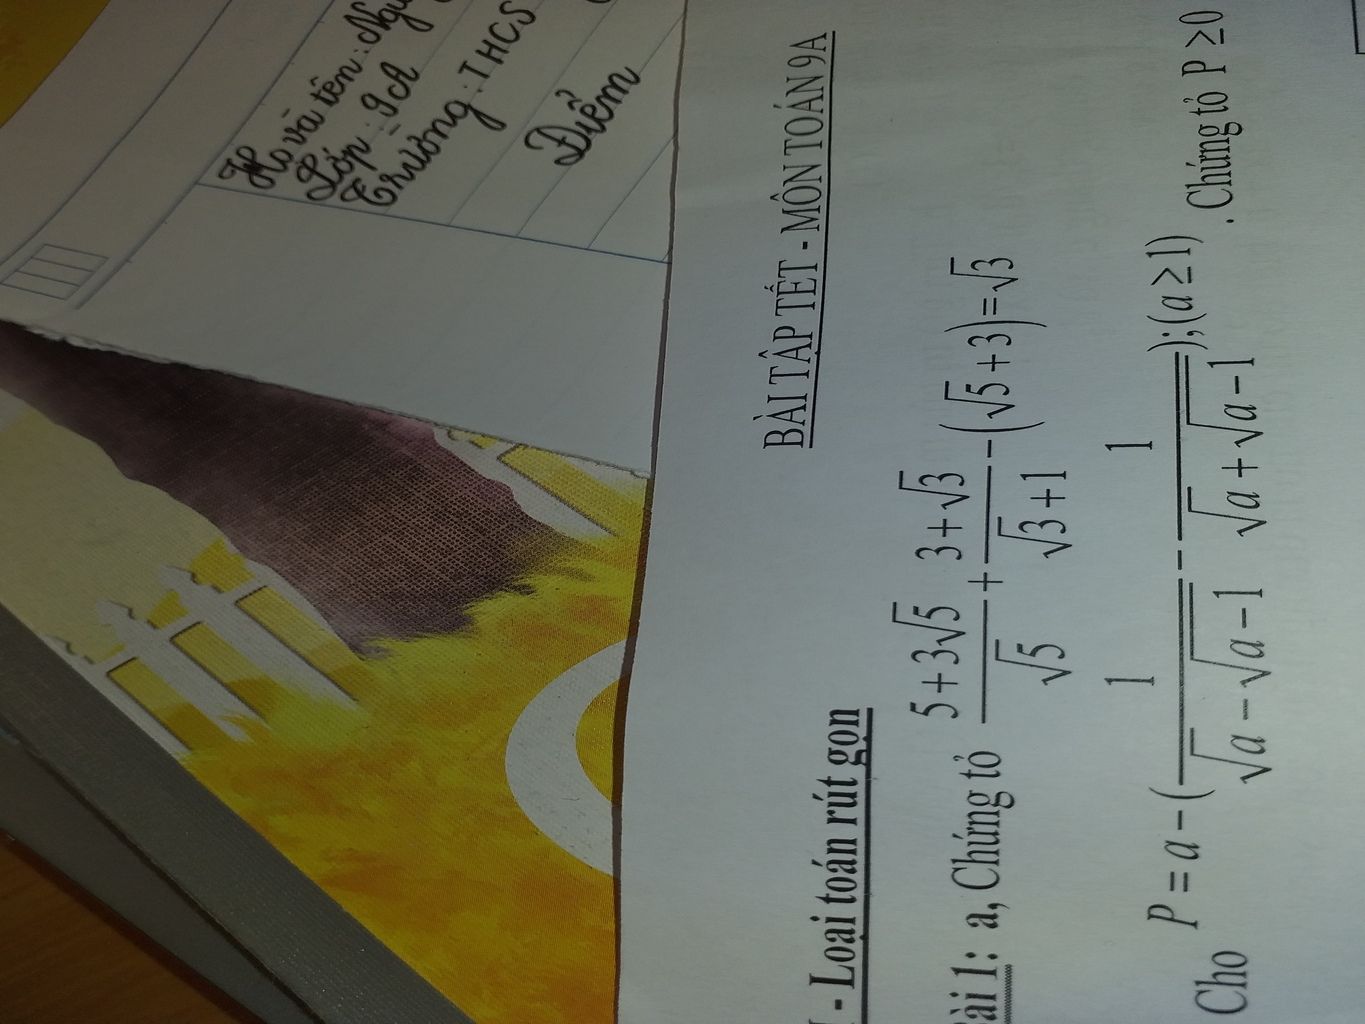 Họ và tên : Ngu
Lớp : 9A
Trường : THCS
Điểm
BÀI TẬP TẾT - MÔN TOÁN 9A
- Loại toán rút gọn
Bài 1: a, Chứng tỏ (5+3√5)/√5 + (3+√3)/(√3+1) - (√5+3) = √3
Cho P = a - (1/(√a - √(a-1)) - 1/(√a + √(a-1))); (a ≥ 1) . Chứng tỏ P ≥ 0